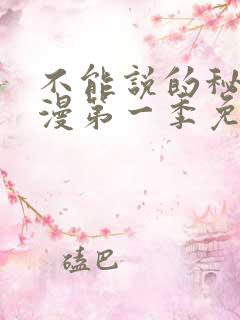 不能説的秘
漫第一季免
磕巴